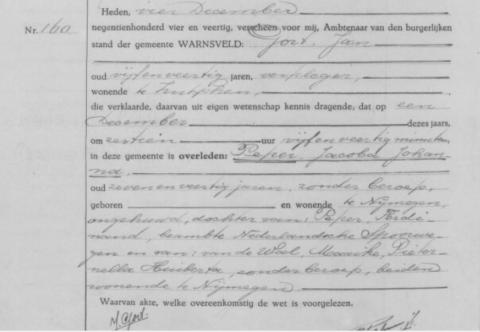 Heden, vier December
Nr. 160. negentienhonderd vier en veertig, verscheen voor mij, Ambtenaar van den burgerlijken
stand der gemeente WARNSVELD: Jort, Jan
oud vijfenveertig jaren, verpleger,
wonende te Zutphen,
die verklaarde, daarvan uit eigen wetenschap kennis dragende, dat op een
December dezes jaars,
om zestien uur vijfenveertig minuten
in deze gemeente is overleden: Peper, Jacoba Johan-
na,
oud zevenenveertig jaren, zonder beroep,
geboren en wonende te Nijmegen,
ongehuwd, dochter van: Peper, Ferdi-
nand, beambte Nederlandsche Spoorwe-
gen en van: van de Wal, Maarike, Pieter-
nella Huiberta, zonder beroep, beiden
wonende te Nijmegen
Waarvan akte, welke overeenkomstig de wet is voorgelezen.